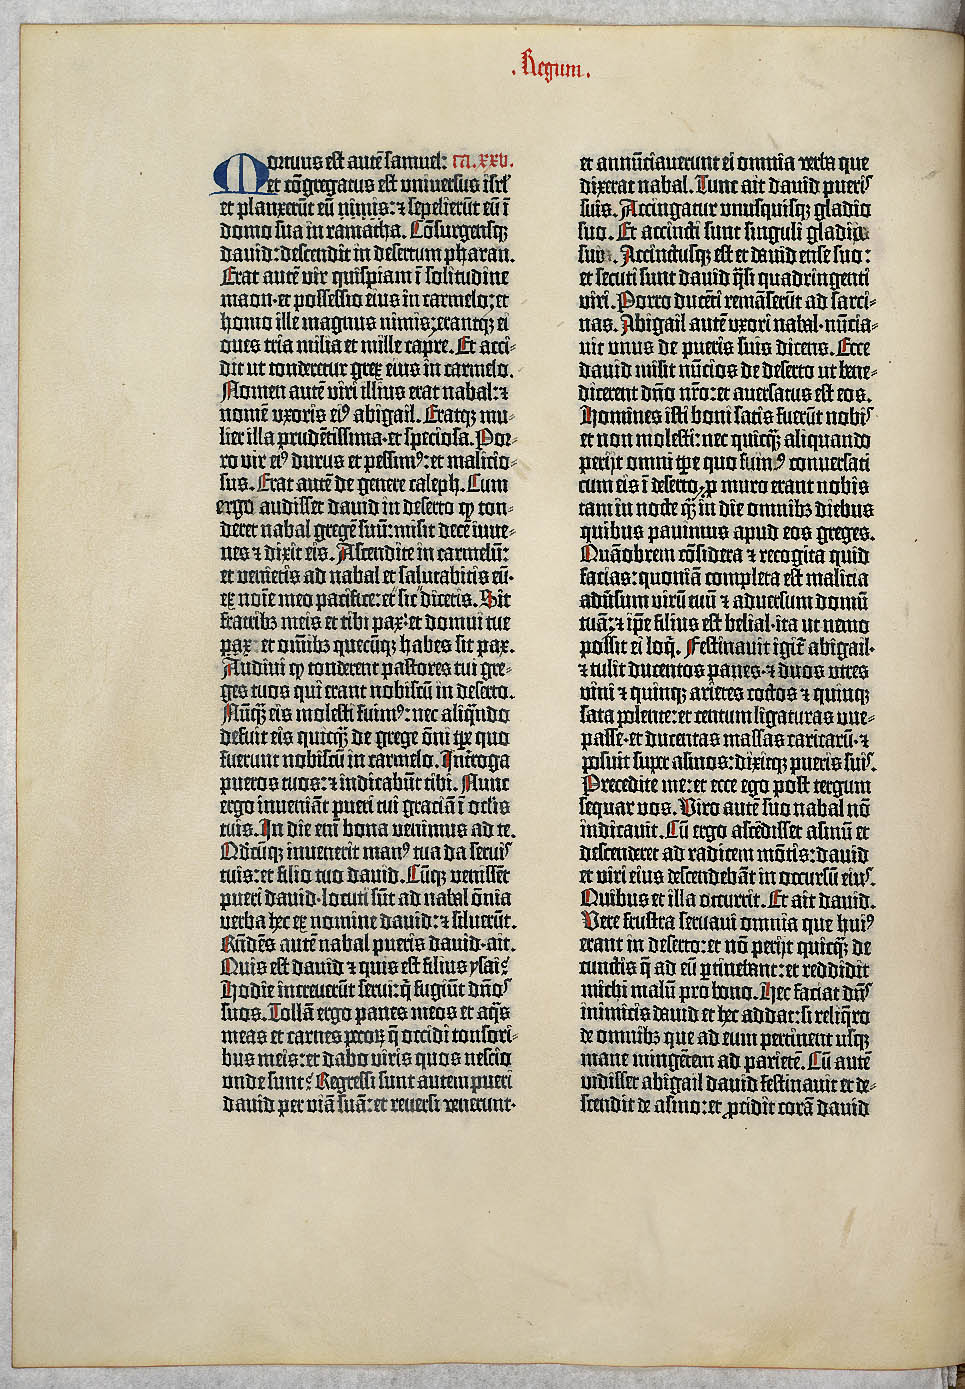 .Regum.
Mortuus est autē samuel: ca.xxv.
et cōgregatus est universus isrl'
et planxerūt eū nimis: ⁊ sepelierūt eū ī
domo sua in ramatha. Cōsurgensq;
david: descendit in desertum pharan.
Erat autē vir quispiam ī solitudine
maon· et possessio eius in carmelo: et
homo ille magnus nimis: erantq; ei
oves tria milia et mille capre. Et acci-
dit ut tonderetur grex eius in carmelo.
Nomen autē viri illius erat nabal: ⁊
nomē vxoris ei⁹ abigail. Eratq; mu-
lier illa prudētissima· et speciosa. Por-
ro vir ei⁹ durus et pessim⁹: et malicio-
sus. Erat autē de genere caleph. Cum
ergo audisset david in deserto ꝙ ton-
deret nabal gregē suū: misit decē iuve-
nes ⁊ dixit eis. Ascendite in carmelū:
et venietis ad nabal et salutabitis eū·
ex noīe meo pacifice: et sic dicetis. Sit
fratribȝ meis et tibi pax: et domui tue
pax: et omībȝ quecūq; habes sit pax.
Audivi ꝙ tonderent pastores tui gre-
ges tuos qui erant nobiscū in deserto.
Nūq̄ȝ eis molesti fuim⁹: nec aliq̄ndo
defuit eis quicq̄ȝ de grege ōni tp̄e quo
fuerunt nobiscū in carmelo. Interoga
pueros tuos: ⁊ indicabūt tibi. Nunc
ergo inveniāt pueri tui graciā ī oclis
tuis. In die eni bona venimus ad te.
Qd̄cūq; invenerit man⁹ tua da servis
tuis: et filio tuo david. Cūq; venissēt
pueri david· locuti sūt ad nabal ōnia
verba hec ex nomine david: ⁊ siluerūt.
Rn̄dēs autē nabal pueris david· ait.
Quis est david ⁊ quis est filius ysai?
Hodie increverūt servi: q̄ fugiūt dn̄os
suos. Tollā ergo panes meos et aq̄s
meas et carnes pecoꝝ q̄ occidi tonsori-
bus meis: et dabo viris quos nescio
unde sunt? Regressi sunt autem pueri
david per viā suā: et reversi venerunt·
et annūciaverunt ei omnia verba que
dixerat nabal. Tunc ait david pueris
suis. Accingatur unusquisq; gladio
suo. Et accincti sunt singuli gladiis
suis. Accinctusq; est et david ense suo:
et secuti sunt david q̄si quadringenti
viri. Porro ducēti remāserūt ad sarci-
nas. Abigail autē vxori nabal· nūcia-
vit unus de pueris suis dicens. Ecce
david misit nūcios de deserto ut bene-
dicerent dn̄o nr̄o: et aversatus est eos.
Homines isti boni satis fuerūt nobis
et non molesti: nec quicq̄ȝ aliquando
perijt omni tp̄e quo fuim⁹ conversati
cum eis ī deserto, ꝓ muro erant nobis
tam in nocte q̄ȝ in die omnibȝ diebus
quibus pavimus apud eos greges.
Quāobrem cōsidera ⁊ recogita quid
facias: quoniā completa est malicia
adūsum virū tuū ⁊ adversum domū
tuā: ⁊ ip̄e filius est belial· ita ut nemo
possit ei loq̄. Festinavit igit̄ abigail·
⁊ tulit ducentos panes· ⁊ duos utres
vini ⁊ quinq; arietes coctos ⁊ quinq;
sata polente: et centum ligaturas uve-
passe· et ducentas massas caricarū· ⁊
posuit super asinos: dixitq; pueris suis.
Precedite me: et ecce ego post tergum
sequar vos. Viro autē suo nabal nō
indicavit. Cū ergo ascēdisset asinū et
descenderet ad radicem mōtis: david
et viri eius descendebāt in occursū eius.
Quibus et illa occurrit. Et ait david.
Vere frustra servavi omnia que hui⁹
erant in deserto: et nō perijt quicq̄ȝ de
cunctis q̄ ad eū ꝑtinebant: et reddidit
michi malū pro bono. Hec faciat dn̄s
inimicis david et hec addat: si reliq̄ro
de omnibȝ que ad eum pertinent usq;
mane mingētem ad parietē. Cū autē
vidisset abigail david festinavit et de-
scendit de asino: et ꝓcidit corā david